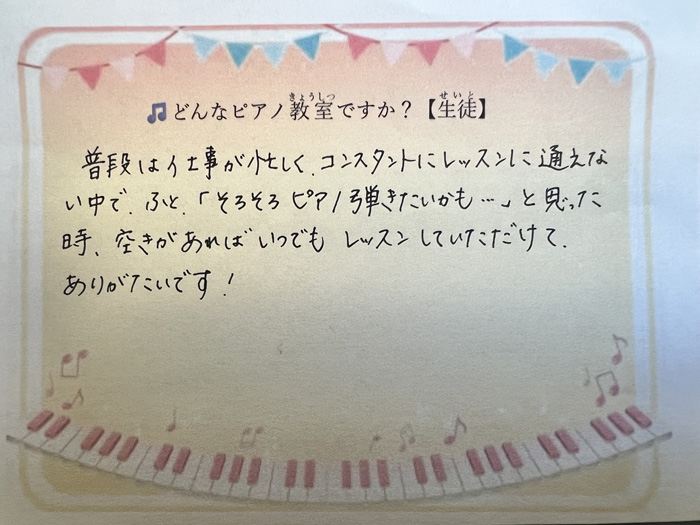 🎵どんなピアノ教室ですか？【生徒】
普段は仕事が忙しく、コンスタントにレッスンに通えな
い中で、ふと、「そろそろピアノ弾きたいかも…」と思った
時、空きがあればいつでも レッスンしていただけて、
ありがたいです！